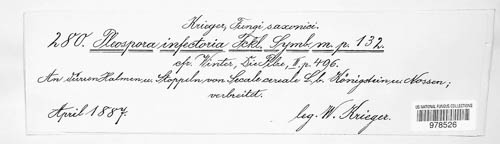 Krieger, Fungi saxonici.
280. Pleospora infectoria Fckl. Symb. m. p. 132.
cfr. Winter, Die Pilze, II p. 496.
An dürren Halmen u. Stoppeln von Secale cereale L. b. Königstein u. Nossen;
verbreitet.
April 1887. leg. W. Krieger.
US NATIONAL FUNGUS COLLECTIONS
978526